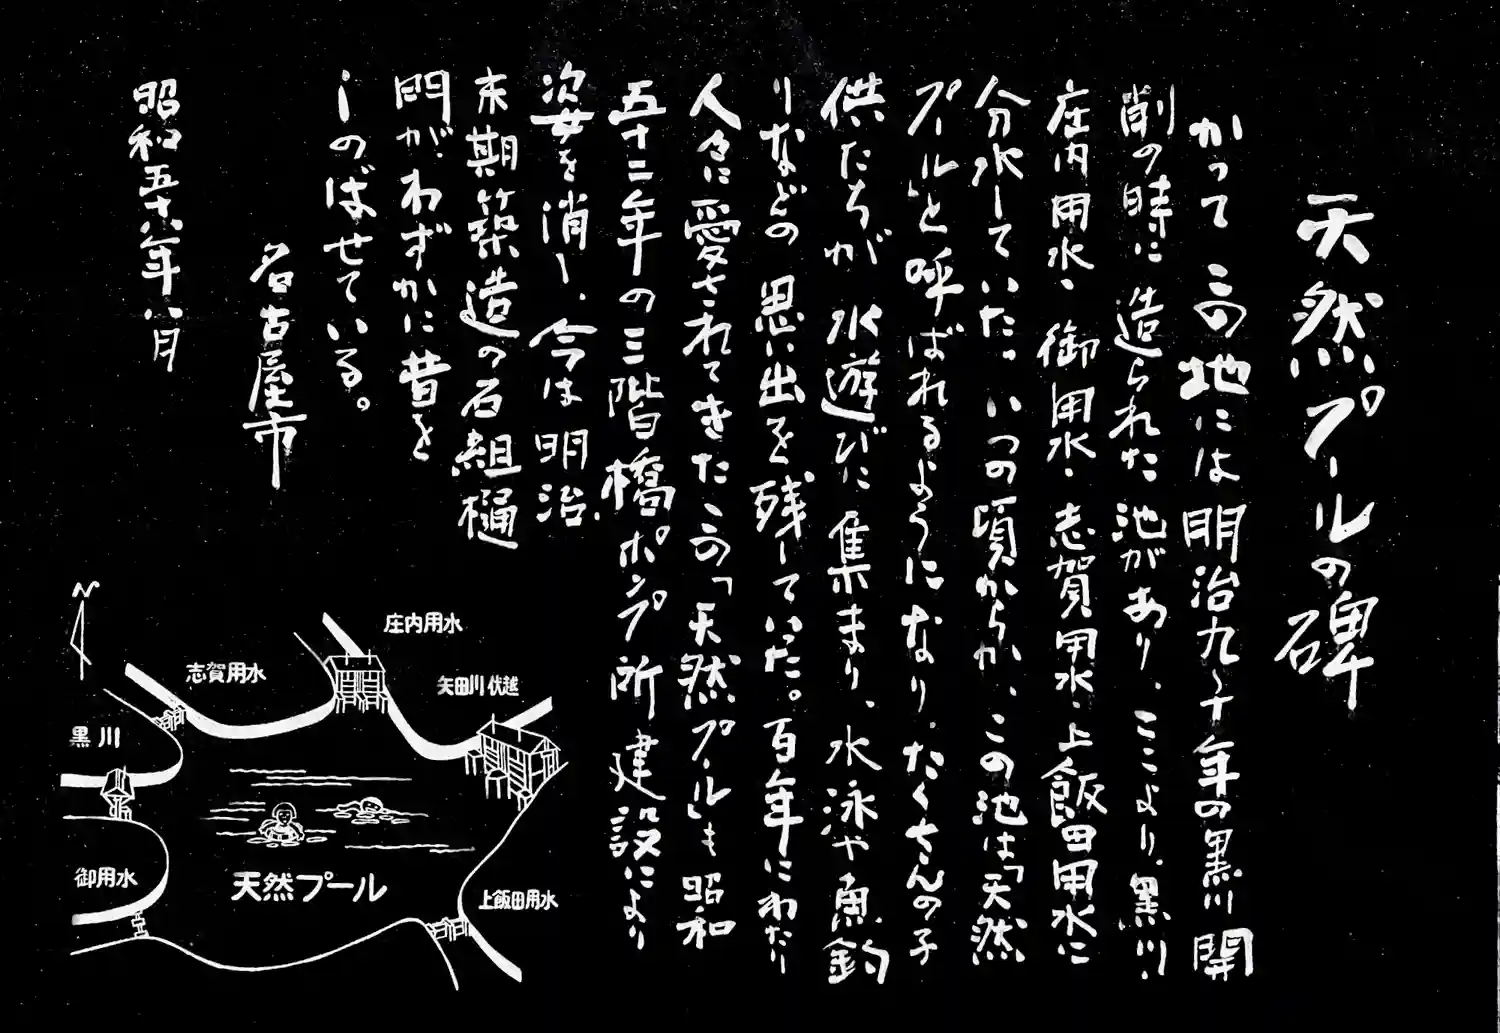 天然プールの碑
かつて この地には明治九〜十年の黒川開
削の時に造られた池があり、ここより、黒川・
庄内用水・御用水・志賀用水・上飯田用水に
分水していた。いつの頃からか、この池は「天然
プール」と呼ばれるようになり、たくさんの子
供たちが水遊びに集まり、水泳や魚釣
りなどの思い出を残していった。百年にわたり
人々に愛されてきたこの「天然プール」も昭和
五十二年の三階橋ポンプ所建設により
姿を消し、今は明治
末期築造の石組樋
門が、わずかに昔を
しのばせている。
名古屋市
昭和五十六年八月
N
庄内用水
志賀用水
矢田川伏越
黒川
御用水
天然プール
上飯田用水